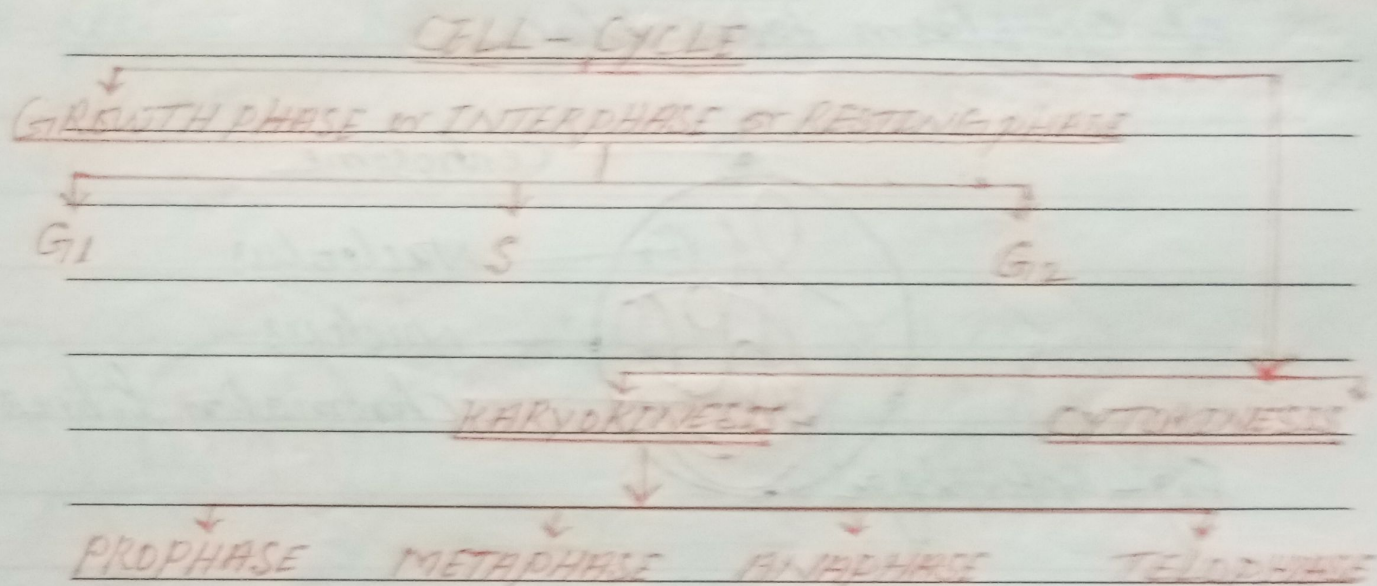 CELL - CYCLE
GROWTH PHASE or INTERPHASE or RESTING PHASE
G1 S G2
KARYOKINESIS CYTOKINESIS
PROPHASE METAPHASE ANAPHASE TELOPHASE